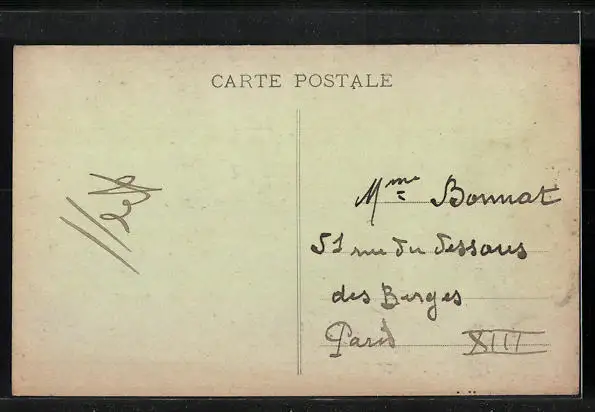 CARTE POSTALE
Mme Bonnat
51 rue du Dessous
des Berges
Paris XIII